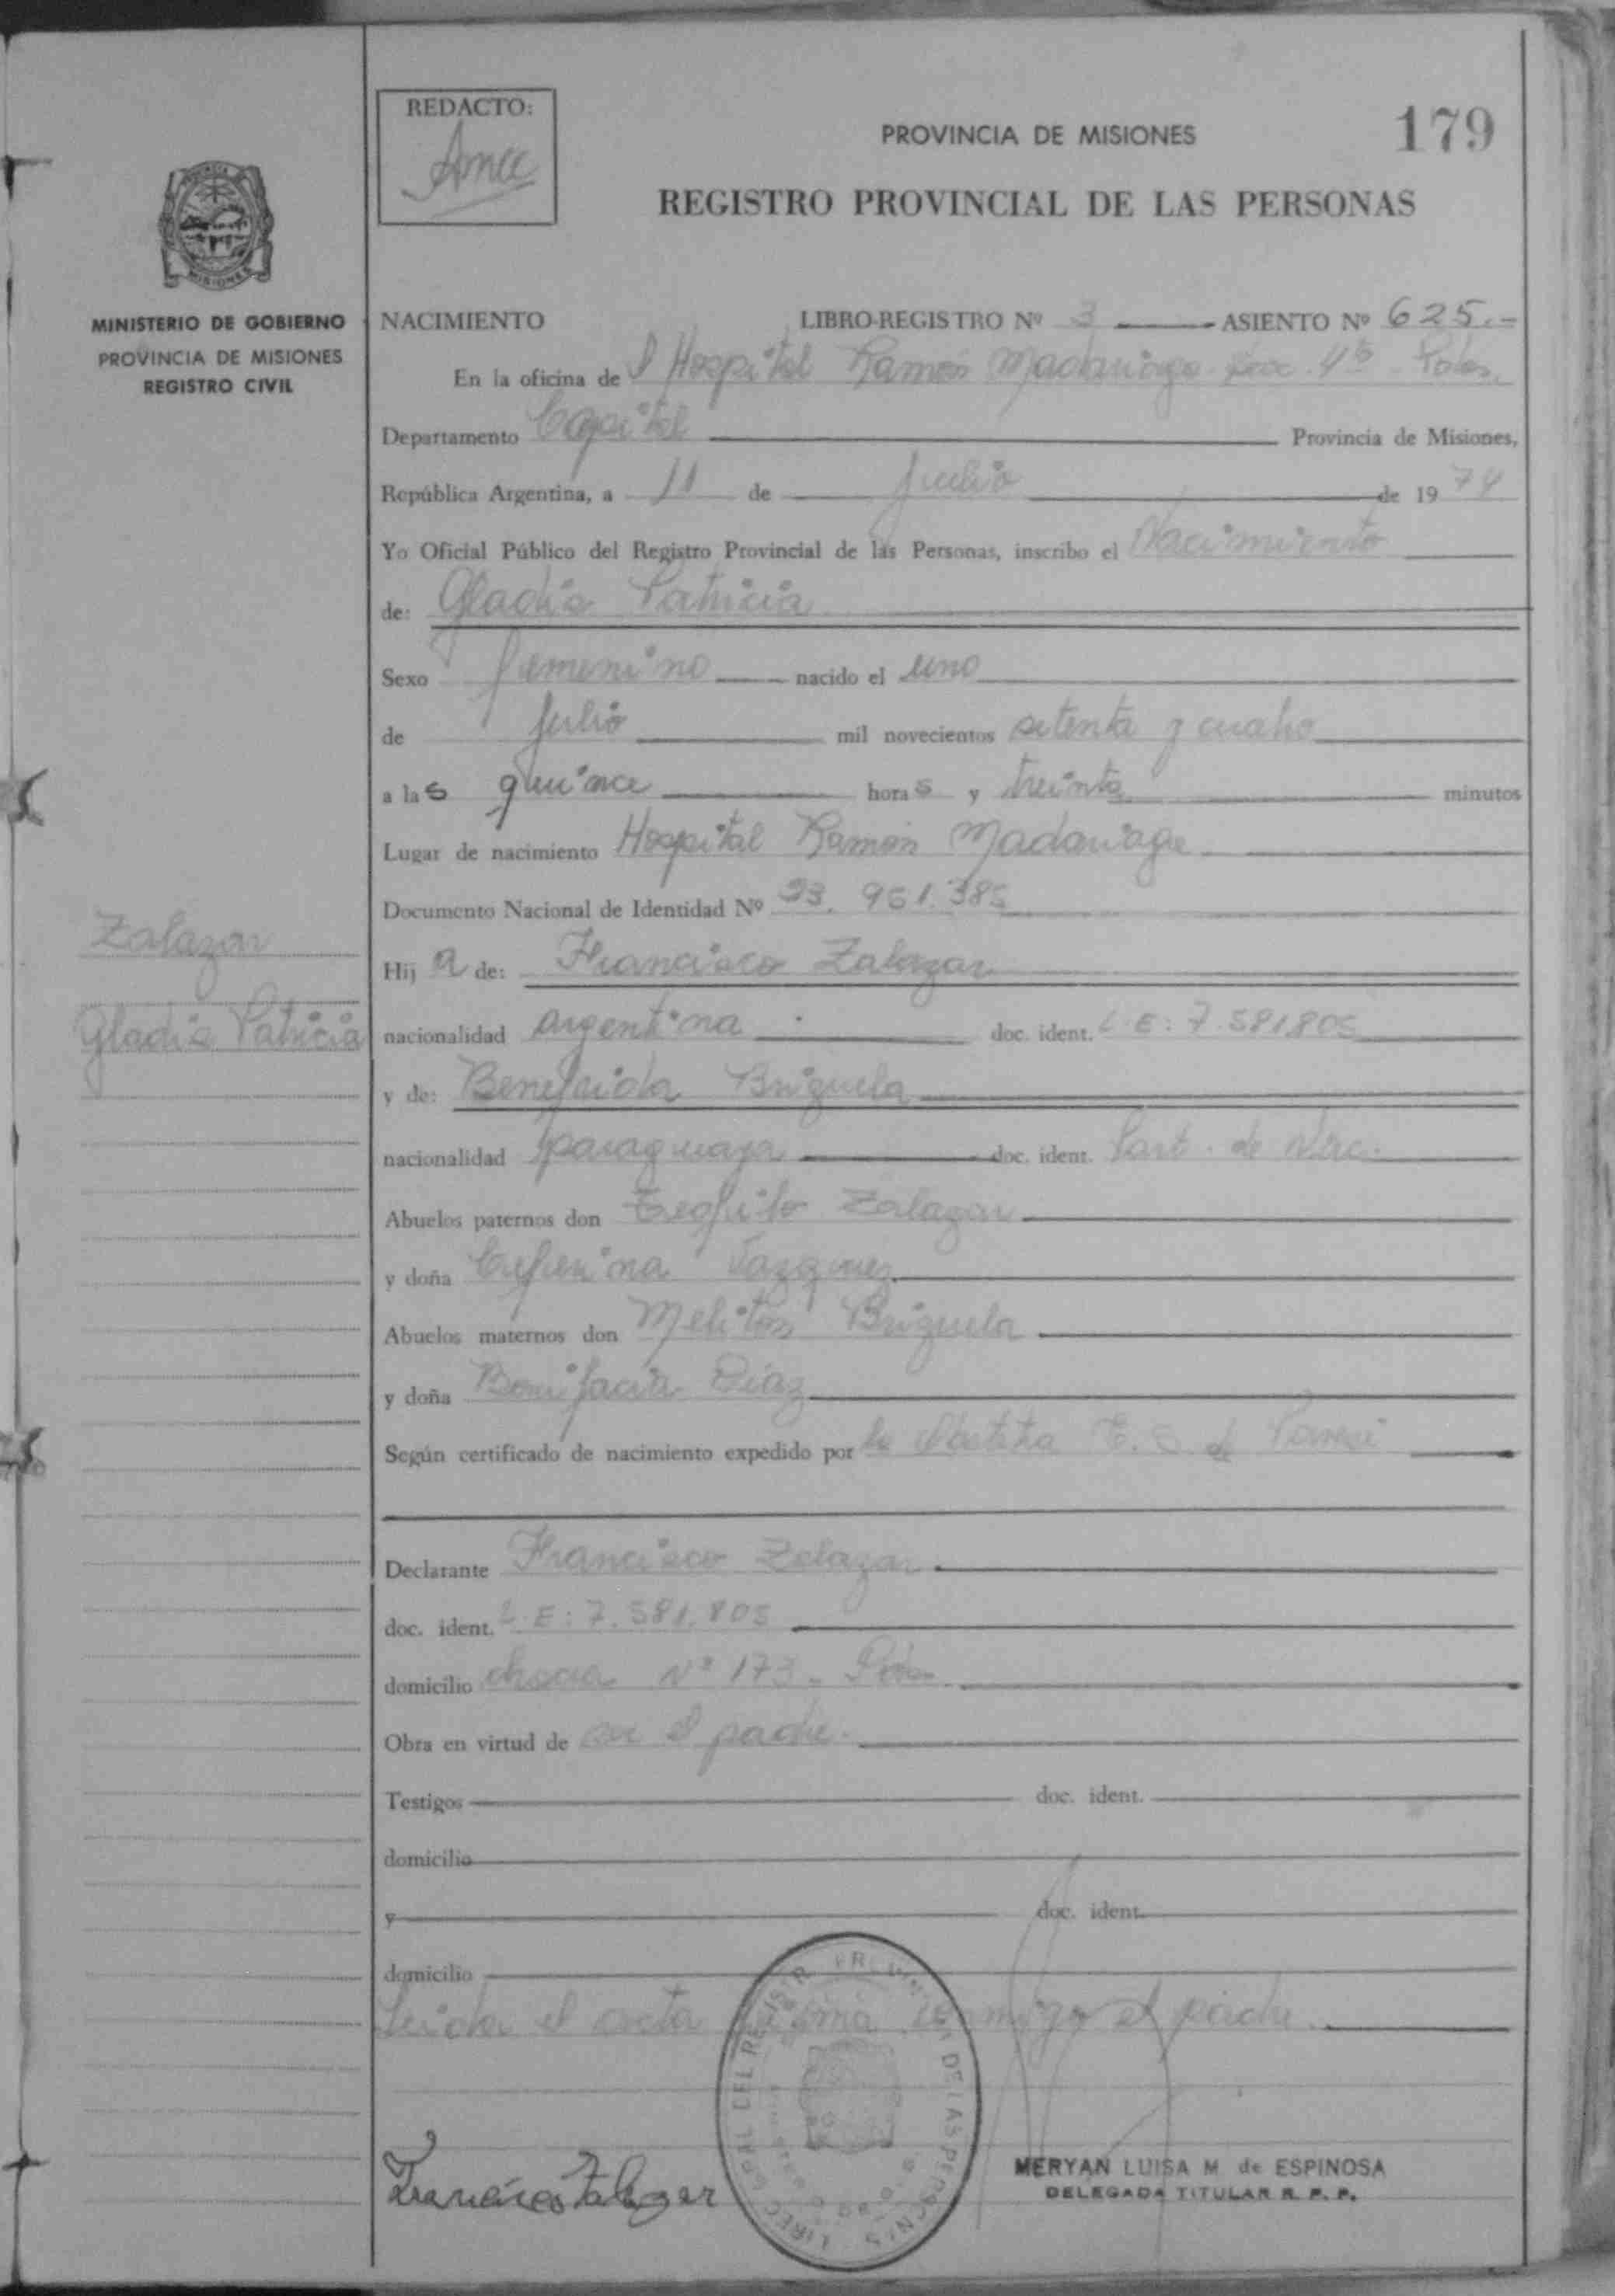 REDACTO:
Amcc
PROVINCIA DE MISIONES
179
REGISTRO PROVINCIAL DE LAS PERSONAS
MISIONES
MINISTERIO DE GOBIERNO
PROVINCIA DE MISIONES
REGISTRO CIVIL
NACIMIENTO LIBRO-REGISTRO Nº 3 ASIENTO Nº 625.-
En la oficina de l Hospital Ramón Madariaga
Departamento Capital Provincia de Misiones,
República Argentina, a 11 de Julio de 1974
Yo Oficial Público del Registro Provincial de las Personas, inscribo el Nacimiento
de: Gladis Patricia
Sexo femenino nacido el uno
de Julio mil novecientos setenta y cuatro
a las quince horas y treinta minutos
Lugar de nacimiento Hospital Ramón Madariaga
Documento Nacional de Identidad Nº 23.961.385
Zalazar
Hija de: Francisco Zalazar
Gladis Patricia
nacionalidad argentina doc. ident. L.E: 7.581.805
y de: Benefrida Brizuela
nacionalidad paraguaya doc. ident. Part. de Nac.
Abuelos paternos don Zalazar
y doña Ceferina Vazquez
Abuelos maternos don Meliton Brizuela
y doña Bonifacia Diaz
Según certificado de nacimiento expedido por la
Declarante Francisco Zalazar
doc. ident. L.E: 7.581.805
domicilio chacra Nº 173 - Pdas
Obra en virtud de ser el padre.
Testigos doc. ident.
domicilio
y doc. ident.
domicilio
Leida el acta firma conmigo el padre.
DIREC. GRAL DEL REGISTR. PROVINCIAL DE LAS PERSONAS
Francisco Zalazar
MERYAN LUISA M. de ESPINOSA
DELEGADA TITULAR R. P. P.